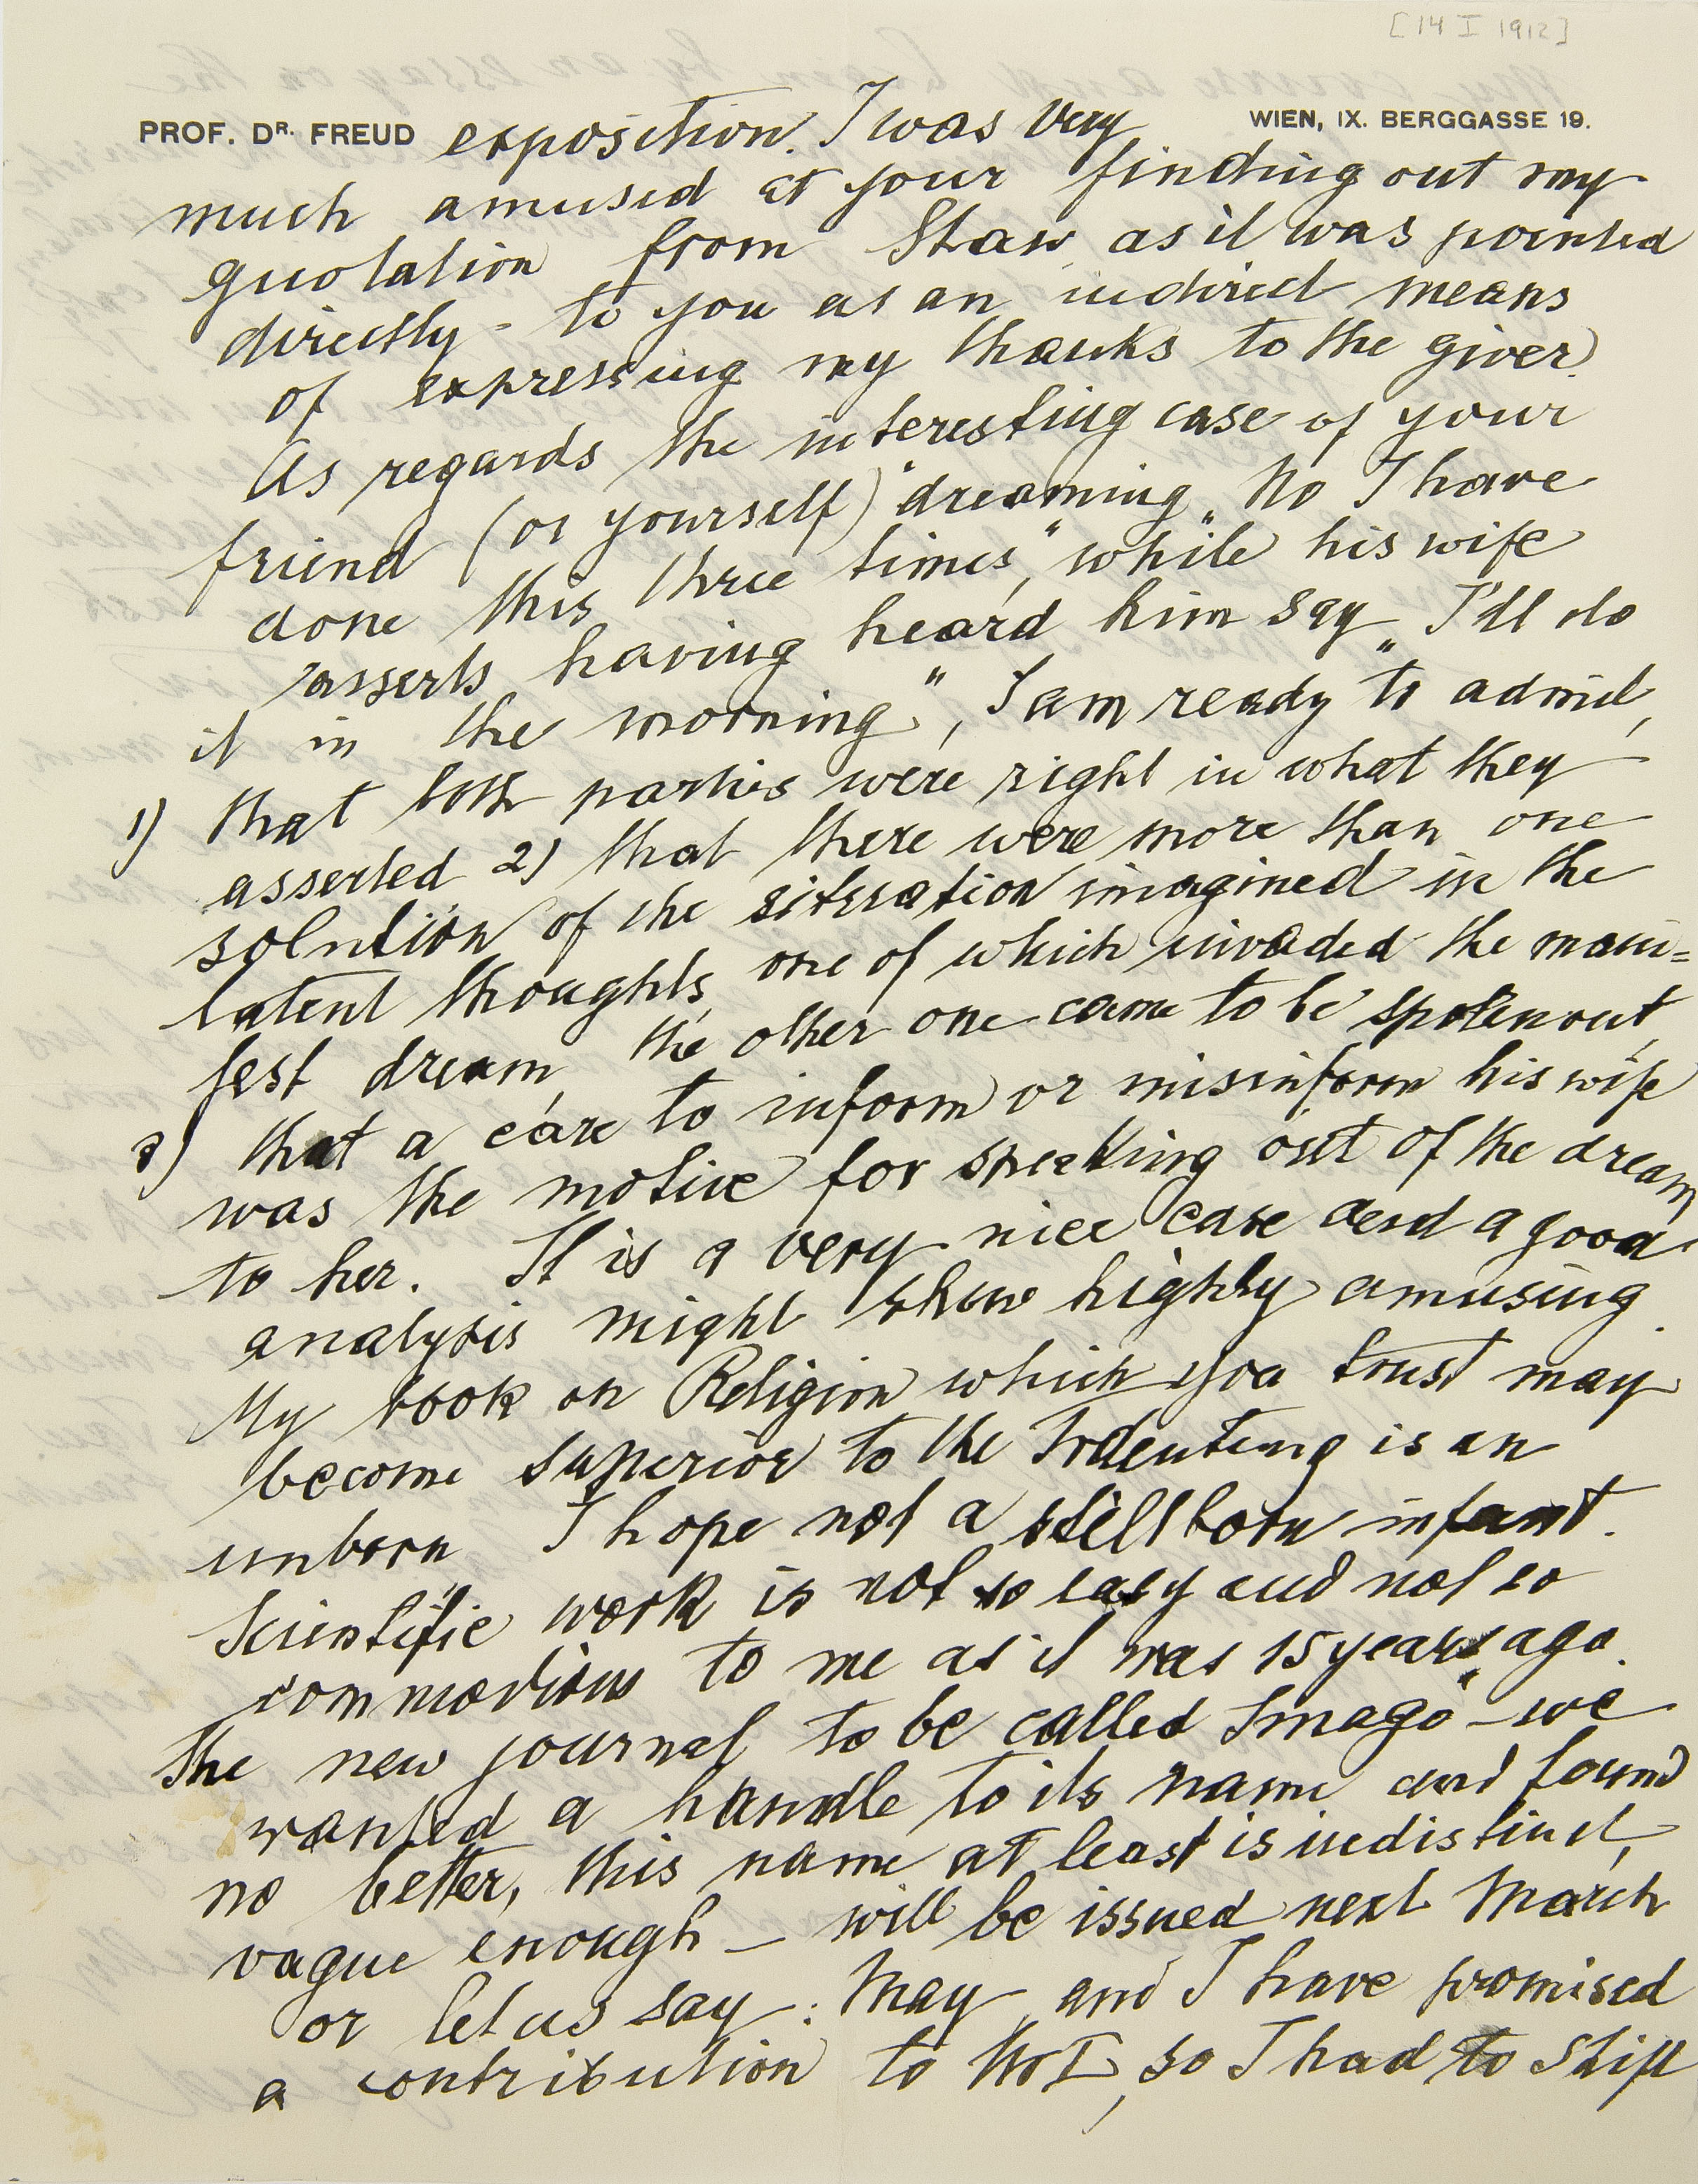 [14 I 1912]
PROF. DR. FREUD
WIEN, IX. BERGGASSE 19.
exposition. I was very
much amused at your finding out my
quotation from Shaw, as it was pointed
directly - to you as an indirect means
of expressing my thanks to the giver.
As regards the interesting case of your
friend (or yourself) "dreaming „No I have
done this three times", while his wife
asserts having heard him say „I'll do
it in the morning", I am ready to admit,
1) that both parties were right in what they
asserted 2) that there were more than one
solution of the situation imagined in the
latent thoughts, one of which invaded the mani=
fest dream, the other one came to be spoken out,
3) that a care to inform or misinform his wife
was the motive for speaking out of the dream
to her. It is a very nice case and a good
analysis might show highly amusing.
My book on Religion which you trust may
become superior to the Trdeutung is an
unborn I hope not a stillborn infant.
Scientific work is not so easy and not so
commodious to me as it was 15 years ago.
The new journal to be called Imago" - we
wanted a handle to its name and found
no better, this name at least is indistinct,
vague enough – will be issued next March
or let us say: May, and I have promised
a contribution to No I, so I had to stifl